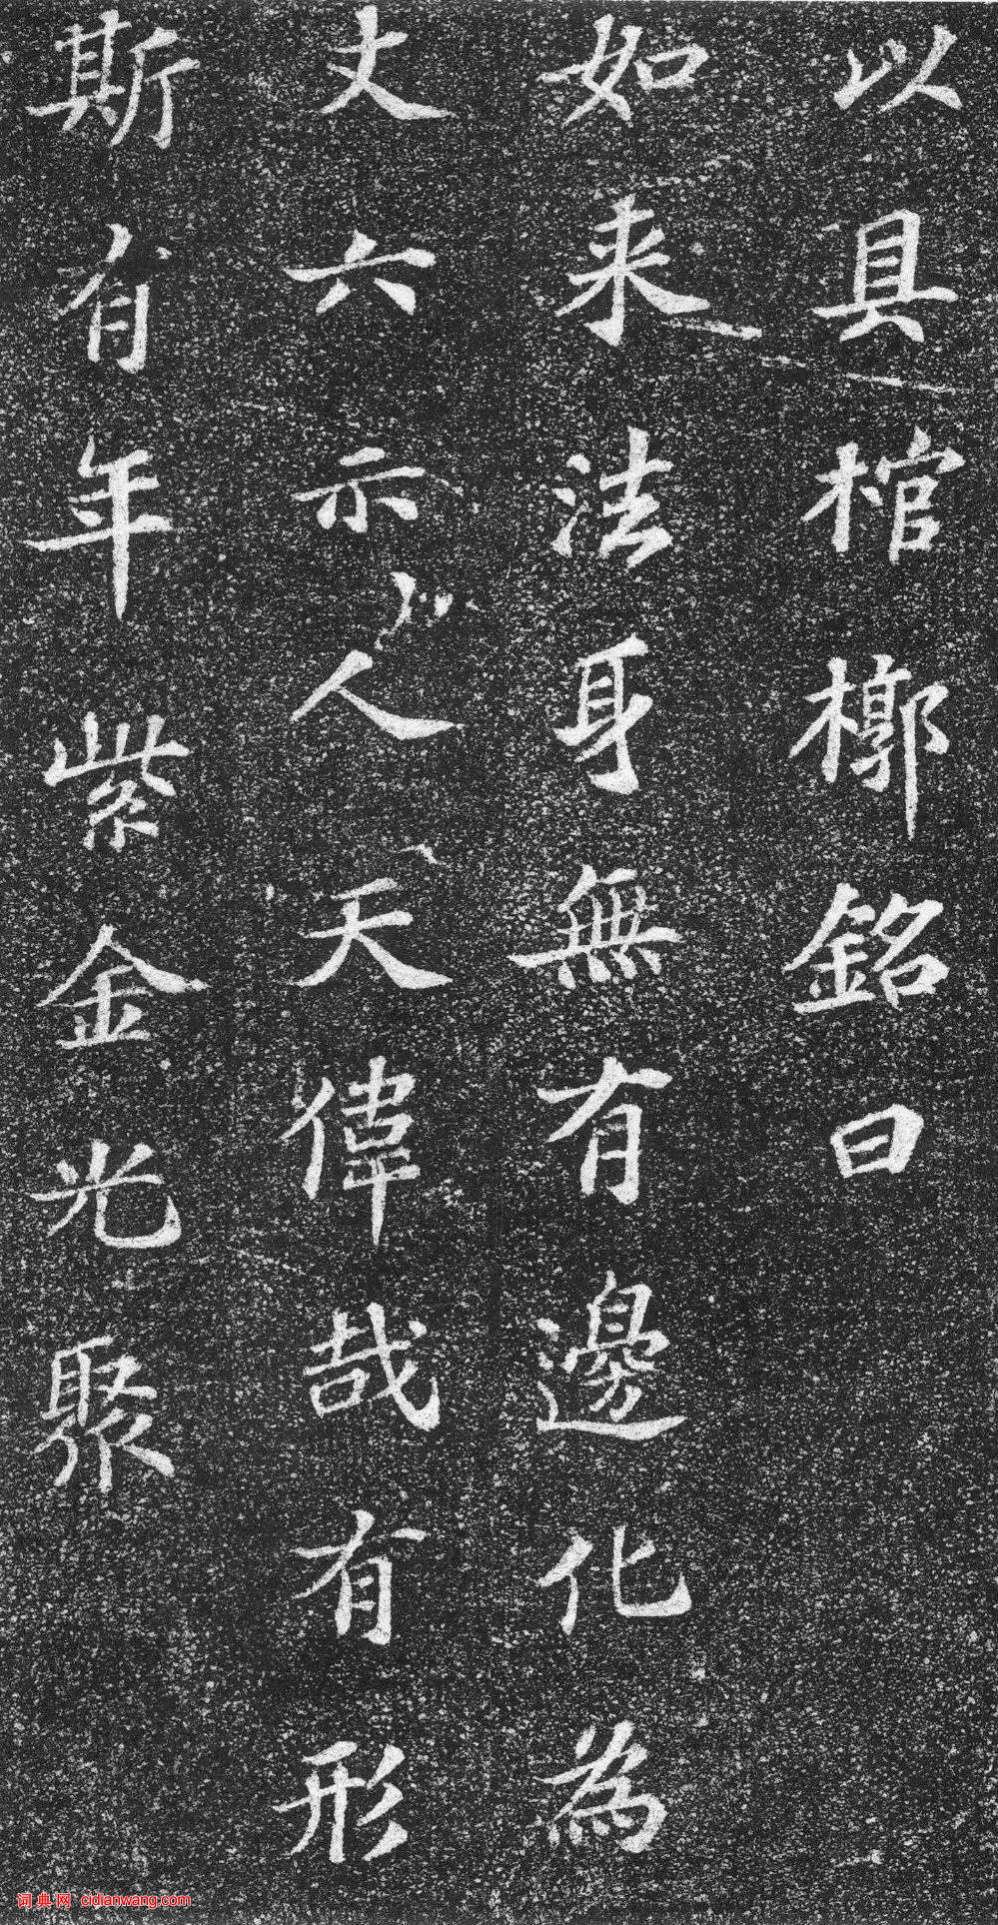 以具棺槨銘曰
如来法身無有邊化為
丈六示人天偉哉有形
斯有年紫金光聚
词典网 cidianwang.com